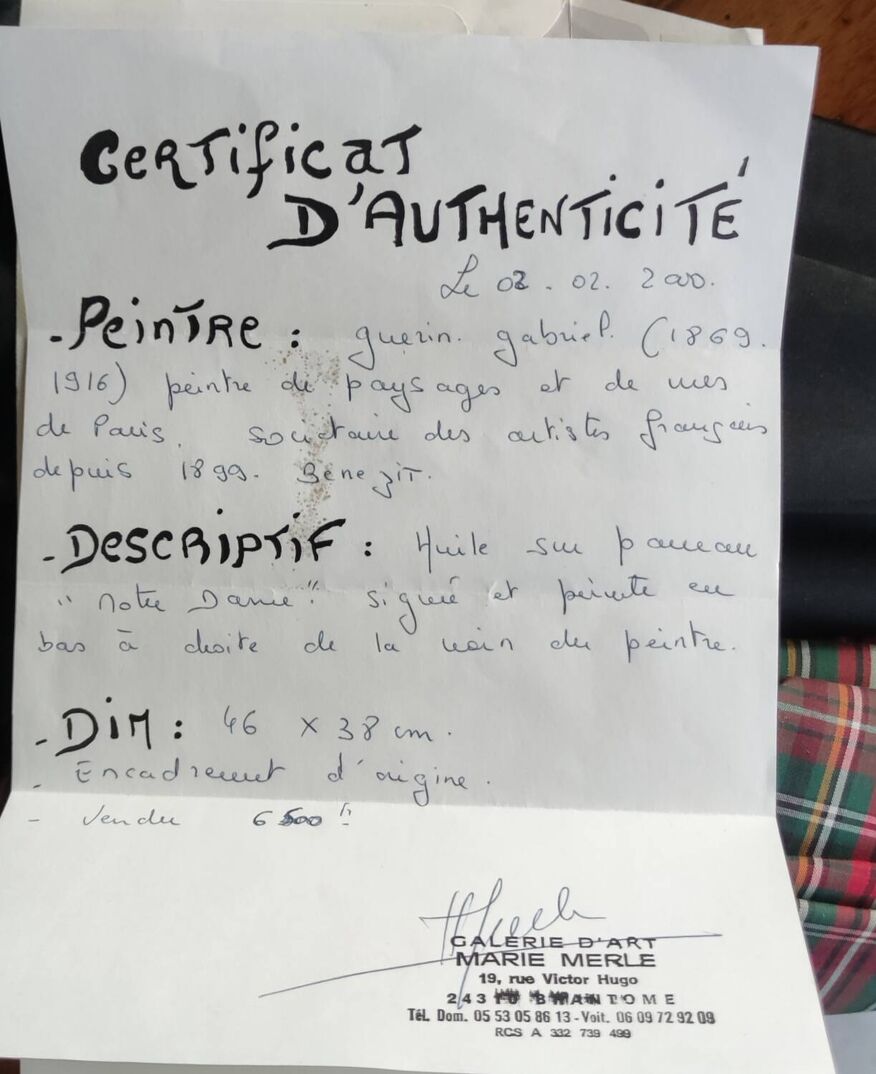 CERTIFICAT
D'AUTHENTICITÉ
Le 02. 02. 2000.
- PEINTRE : guerin. gabriel. (1869.
1916) peintre de paysages et de vues
de Paris. sociétaire des artistes français
depuis 1899. Bénézit.
- DESCRIPTIF : Huile sur panneau
"Notre Dame". signé et peinte en
bas à droite de la main du peintre.
- DIM : 46 x 38 cm.
- Encadrement d'origine.
- Vendu 6500
GALERIE D'ART
MARIE MERLE
19, rue Victor Hugo
24310 BRANTOME
Tél. Dom. 05 53 05 86 13 - Voit. 06 09 72 92 09
RCS A 332 739 499